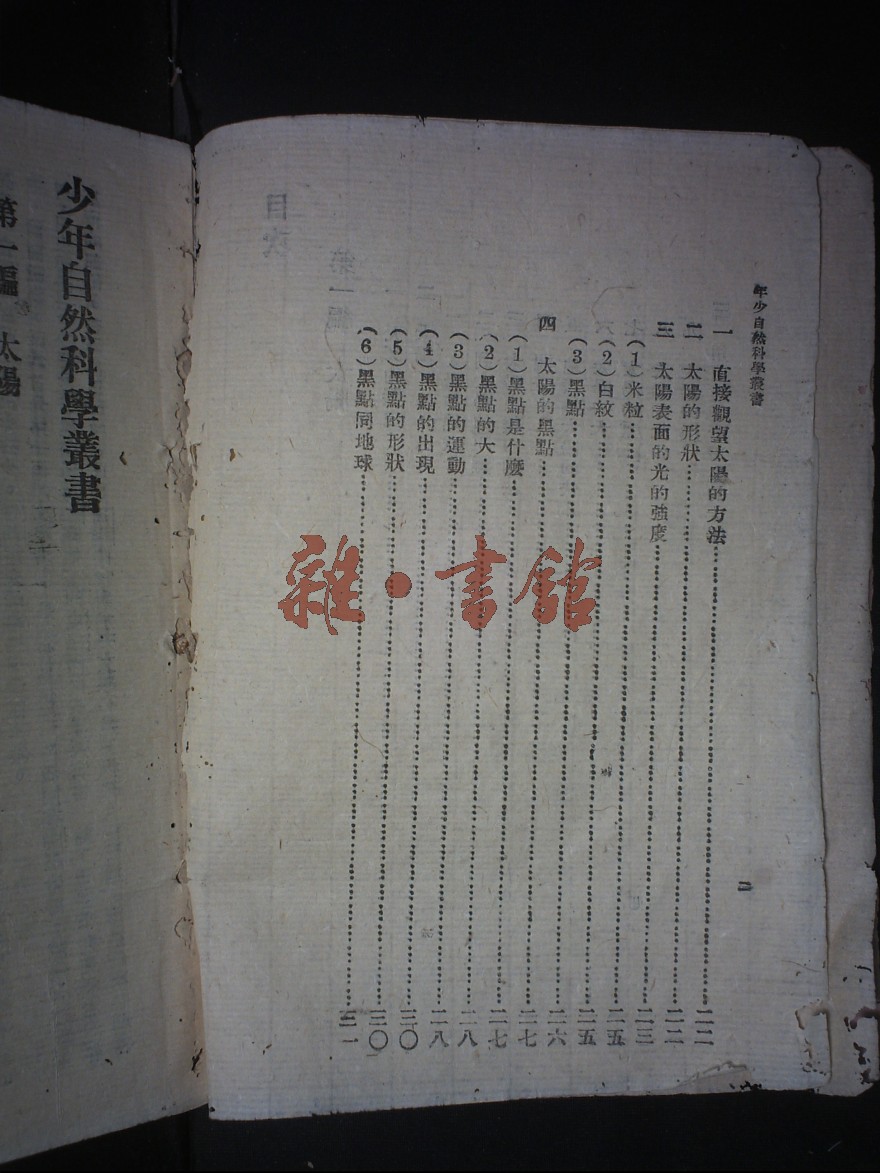 年少自然科學叢書
二
一 直接觀望太陽的方法……二二
二 太陽的形狀……二二
三 太陽表面的光的強度……二三
(1)米粒……二五
(2)白紋……二五
(3)黑點……二六
四 太陽的黑點……二七
(1)黑點是什麼……二七
(2)黑點的大……二八
(3)黑點的運動……二八
(4)黑點的出現……三〇
(5)黑點的形狀……三〇
(6)黑點同地球……三一
少年自然科學叢書
第一編 太陽
雜·書館